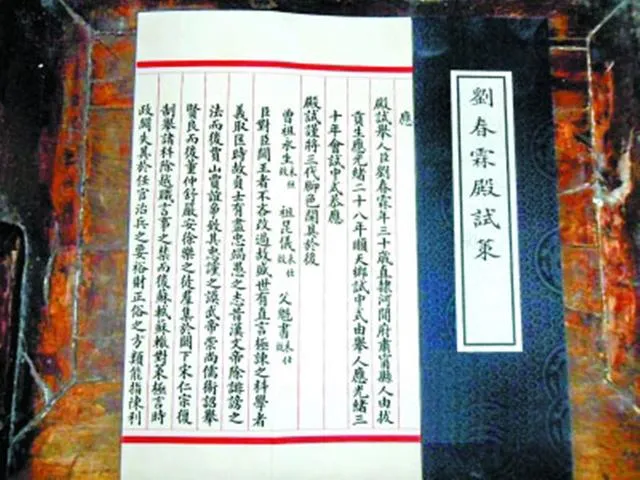 劉春霖殿試策
應
殿試舉人臣劉春霖年三十歲直隸河間府肅甯縣人由拔
貢生應光緒二十八年順天鄉試中式由舉人應光緒三
十年會試中式恭應
殿試謹將三代腳色開具於後
曾祖永生未仕故 祖昆儀未仕故 父魁書未仕故
臣對臣聞王者不吝改過故盛世有直言極諫之科學者
義取匡時故貞士有盡忠竭愚之志昔漢文帝除誹謗之
法而後賈山賈誼爭致其忠謹之謨武帝崇尚儒術詔舉
賢良而後董仲舒嚴安徐樂之徒羣集於闕下宋仁宗復
制舉諸科除越職言事之禁而後蘇軾蘇轍對策極言時
政闕失其於任官治兵之要裕財正俗之方類能指陳利